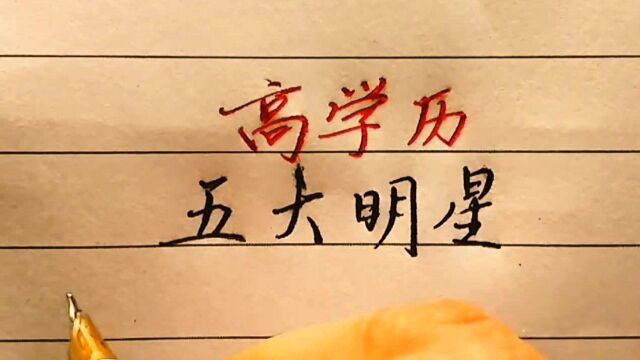 高学历
五大明星